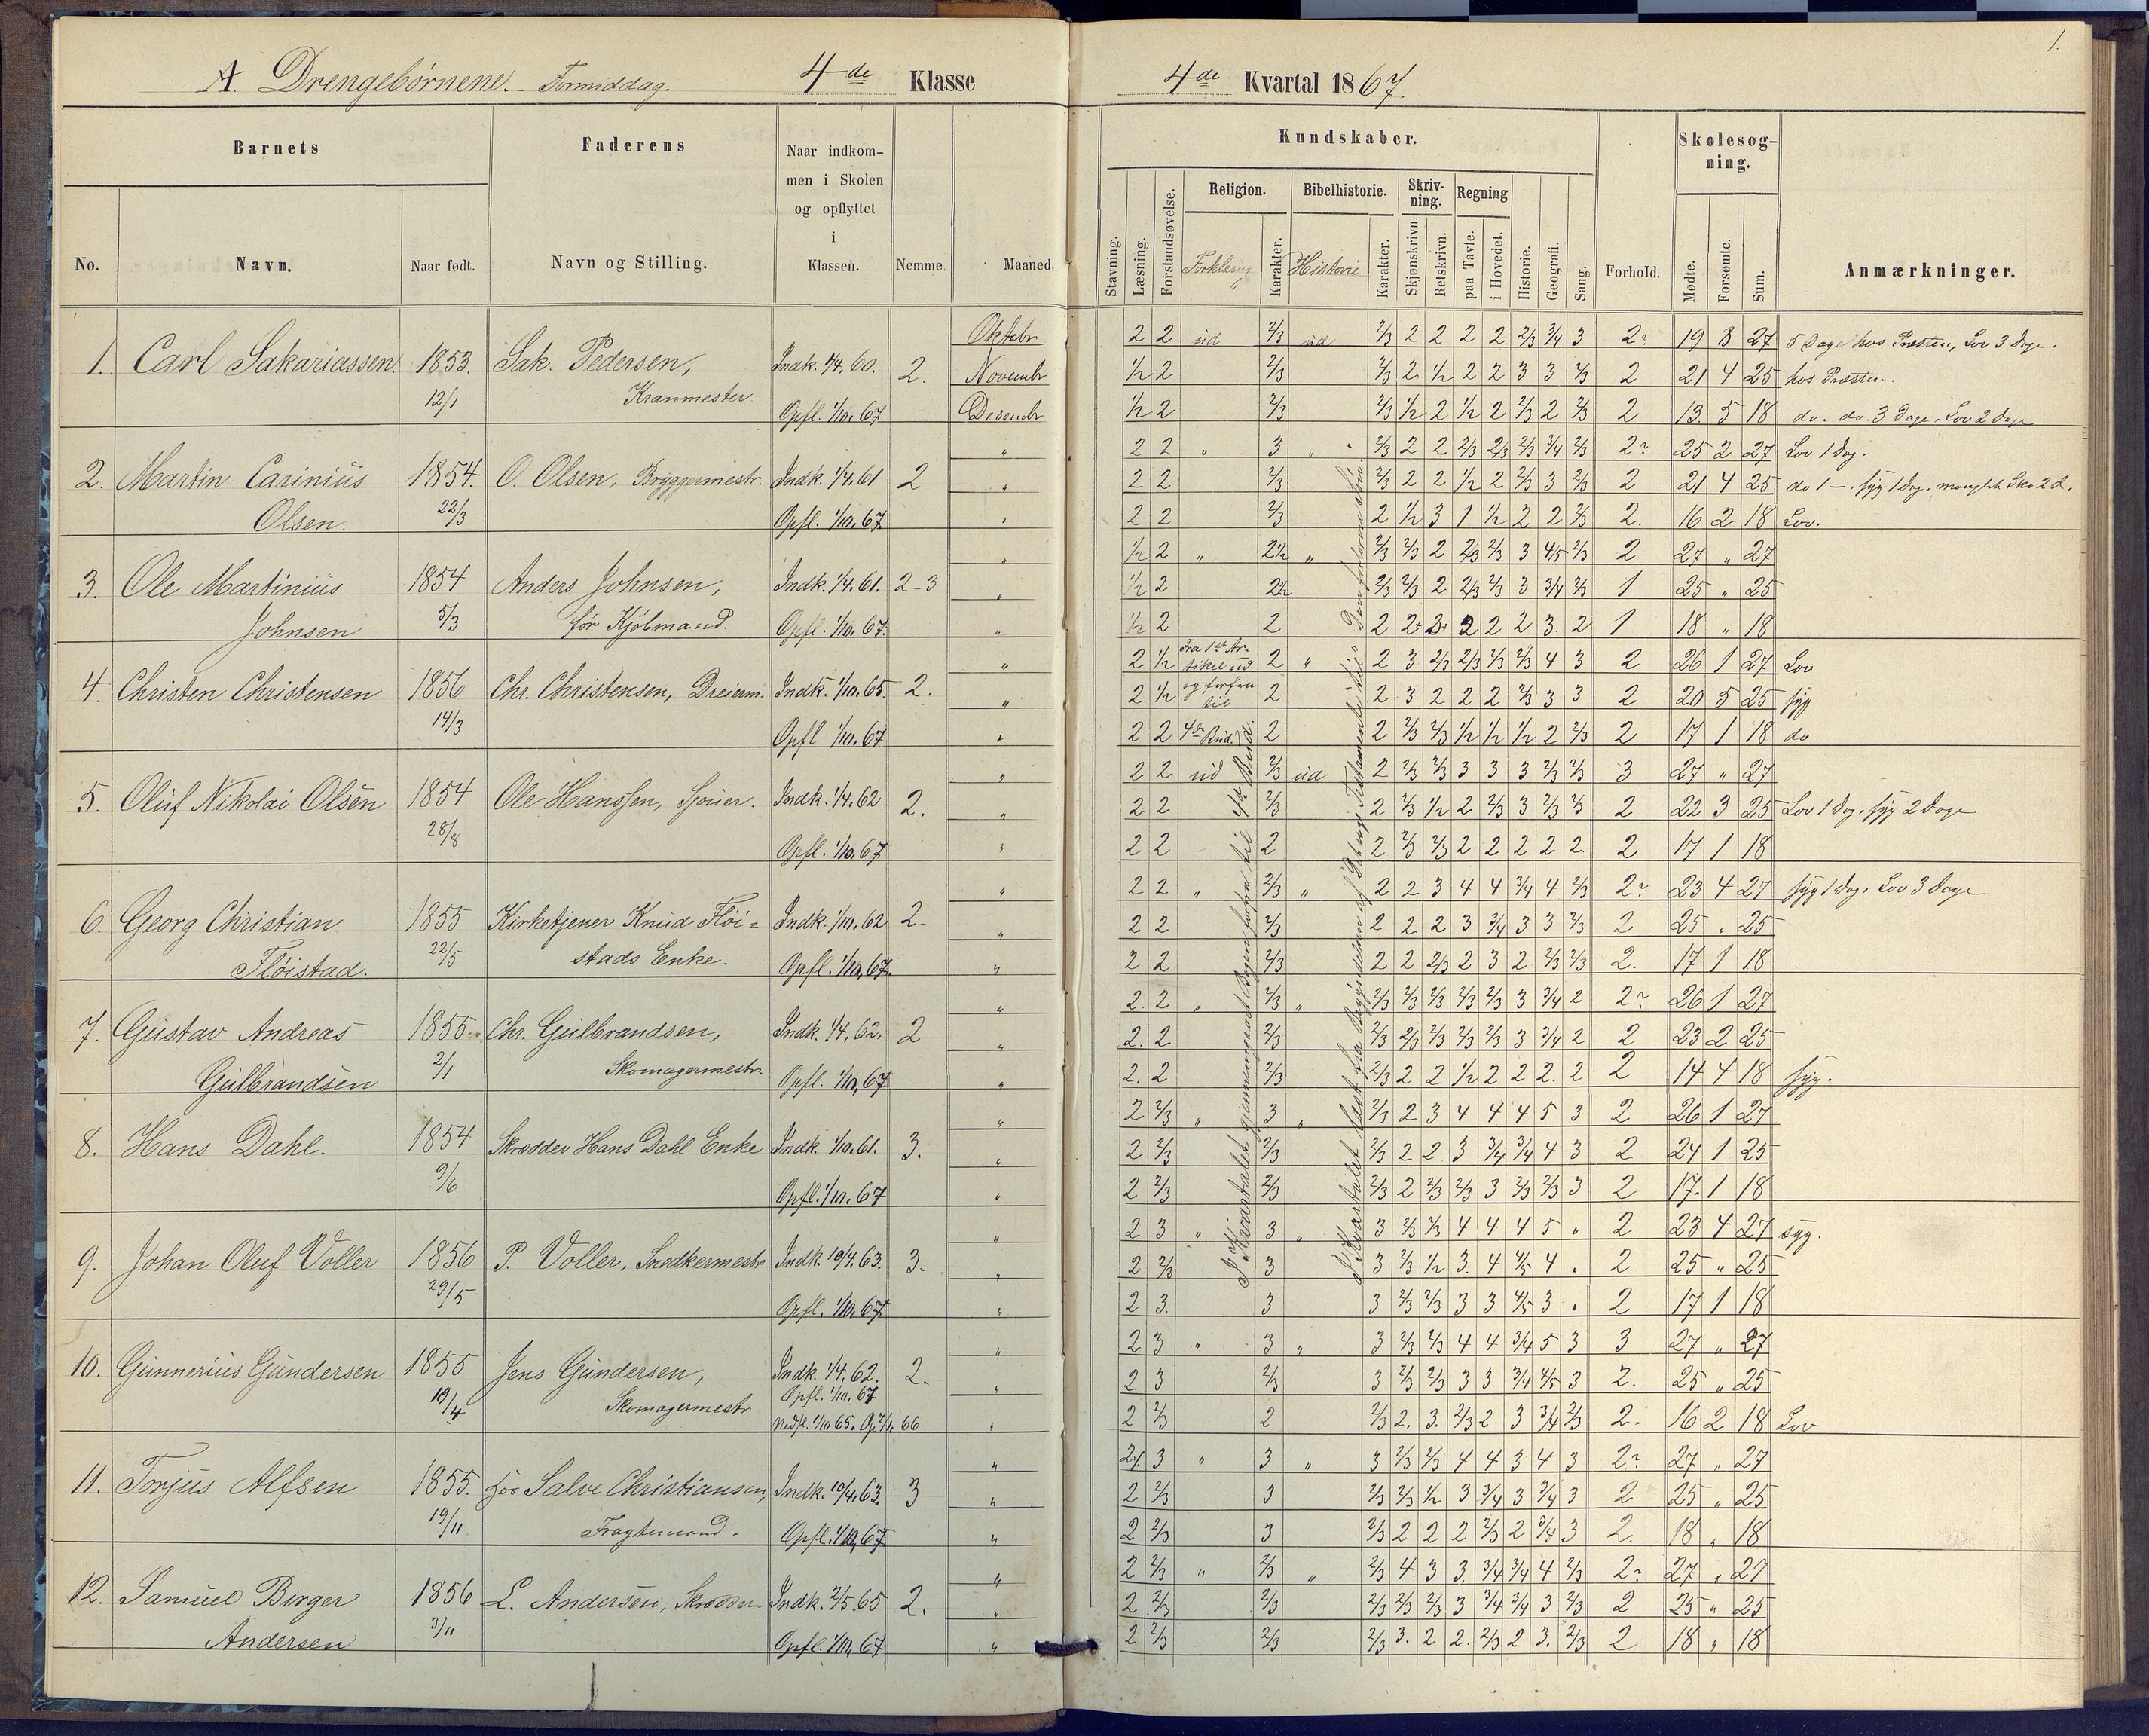 A. Drengebørnene. Formiddag. 4de Klasse
4de Kvartal 1867.
1.
Barnets
Faderens
Naar indkommen i Skolen og opflyttet i Klassen.
Nemme.
Maaned.
No.
Navn.
Naar født.
Navn og Stilling.
Kundskaber.
Stavning.
Læsning.
Forstandsøvelse.
Religion.
Forklaring
Karakter.
Bibelhistorie.
Historie
Karakter.
Skrivning.
Skjønskrivn.
Retskrivn.
Regning
paa Tavle.
i Hovedet.
Historie.
Geografi.
Sang.
Forhold.
Skolesøgning.
Mødte.
Forsømte.
Sum.
Anmærkninger.
1. Carl Sakariassen. 1853. 12/1 Sak. Pedersen, Kranmester Indk. 1/4. 60. Opfl. 1/10. 67 2.
Oktobr 2 2 ud 2/3 ud 2/3 2 2 2 2 2/3 3/4 3 2? 19 8 27 5 Dage hos Præsten, Lov 3 Dage.
Novembr 1/2 2 2/3 2/3 2 1/2 2 2 3 3 2/3 2 21 4 25 hos Præsten.
Desembr 1/2 2 2/3 2/3 1/2 2 1/2 2 2/3 2 2/3 2 13. 5 18 do. do. 3 Dage. Lov 2 Dage
2. Martin Carinius Olsen. 1854. 22/3 O. Olsen, Bryggermestr. Indk. 1/4. 61 Opfl. 1/10. 67 2
" 2 2 " 3 " 2/3 2 2 2/3 2/3 2/3 3/4 2/3 2? 25 2 27 Lov 1 Dag.
" 2 2 2/3 2/3 2 2 1/2 2 2/3 3 2/3 2 21 4 25 do 1 —, syg 1 Dag, manglet Sko 2 d.
" 2 2 2/3 2 1/2 3 1 1/2 2 2 2/3 2. 16 2 18 Lov.
3. Ole Martinius Johnsen 1854 5/3 Anders Johnsen, før Kjøbmand. Indk. 1/4. 61. Opfl. 1/10. 67. 2-3
" 1/2 2 " 2 1/2 " 2/3 2/3 2 2/3 2/3 3 4/5 2/3 2 27 " 27
" 1/2 2 2 1/2 2/3 2/3 2 2/3 2/3 3 3/4 2/3 1 25 " 25
" 1/2 2 2 2 2+ 3+ 2 2 2 3. 2 1 18 " 18
4. Christen Christensen 1856 14/3 Chr. Christensen, Dreierm. Indk. 1/10. 65. Opfl 1/10. 67 2.
" 2 1/2 Fra 1ste Artikel ud 2 " 2 3 2/3 2/3 2/3 2/3 4 3 2 26 1 27 Lov
" 2 1/2 og forfra til 2 2 3 2 2 2 2/3 3 3 2 20 5 25 syg
" 2 2 4de Bud. 2 2 2/3 2/3 1/2 1/2 1/2 2 2/3 2 17 1 18 do
5. Oluf Nikolai Olsen 1854 28/8 Ole Hanssen, Indk. 1/4. 62 Opfl. 1/10. 67 2.
" 2 2 ud 2/3 ud 2 2/3 2/3 3 3 3 2/3 2/3 3 27 " 27
" 2 2 2/3 2 2/3 1/2 2 2/3 3 2/3 2/3 2 22 3 25 Lov 1 Dag. syg 2 Dage
" 2 2 2 2 2/3 2/3 2 2 2 2 2. 2 17 1 18
6. Georg Christian Fløistad. 1855 22/5 Kirketjener Knud Fløistads Enke. Indk. 1/10. 62 Opfl. 1/10, 67. 2-
" 2 2 " 2/3 " 2 2 3 4 4 3/4 4 2/3 2? 23 4 27 syg 1 Dag. Lov 3 Dage
" 2 2 2/3 2 2 2 3 3/4 3 3 2/3 2 25 " 25
" 2 2 2/3 2 2 2/3 2 3 2 2/3 2/3 2. 17 1 18
7. Gustav Andreas Gulbrandsen 1855 2/1 Chr. Gulbrandsen, Skomagermestr. Indk. 1/4. 62. Opfl. 1/10, 67 2
" 2. 2 " 2/3 " 2/3 2/3 2/3 2/3 2/3 3 3/4 2 2? 26 1 27
" 2. 2 2/3 2/3 2/3 2/3 2/3 2/3 3 3/4 2 2 23 2 25
" 2. 2 2/3 2/3 2 2 1/2 2 2 2. 2 2 14 4 18 syg.
8. Hans Dahl. 1854 9/6 Skrædder Hans Dahl Enke Indk. 1/10. 61. Opfl. 1/10. 67 3.
" 2 2/3 " 3 " 2/3 2 3 4 4 4 5 3 2 26 1 27
" 2 2/3 2/3 2/3 2 2 3 3/4 3/4 4 3 2 24 1 25
" 2 2/3 2/3 2/3 2 2/3 2/3 3 2/3 2/3 3 2 17. 1 18
9. Johan Oluf Voller 1856 29/5 P. Voller, Snedkermestr Indk. 10/4. 63. Opfl. 1/10. 67 3.
" 2 3 " 3 " 3 2/3 2/3 4 4 4 5 " 2 23 4 27 syg.
" 2 2/3 3 3 2/3 1/2 3. 4 4/5 4 " 2 25 " 25
" 2 3. 3 3 2/3 2/3 3 3 4/5 3 " 2 17 1 18
10. Gunnerius Gundersen 1855 19/4 Jens Gundersen, Skomagermestr Indk. 1/4. 62. Opfl. 1/10. 67 Nedfl. 1/10 65. 66 2.
" 2 3 " 3 " 3 2/3 2/3 4 4 3/4 5 3 3 27 " 27
" 2 3 2/3 3 2/3 2/3 3 3 3/4 4/5 3 2. 25 " 25
" 2 2/3 2 2/3 2. 3. 2/3 2 3 3/4 2/3 2. 16 2 18 Lov
11. Torjus Alfsen 1855. 19/11 for Salve Christiansen, Fragtemand. Indk. 10/4. 63. Opfl. 1/10, 67. 3
" 3 " 3 " 3 2/3 2/3 4 4 3 4 3 2? 27 " 27
" 2 2/3 3 2/3 2/3 1/2 3 3/4 3 3/4 3 2 25 " 25
" 2 2/3 3 2/3 2 2 2 2/3 2 3/4 3 2. 18 " 18
12. Samuel Birger Andersen 1856 3/11 L. Andersen, Skrædder Indk. 2/5. 65 Opfl. 1/10, 67 2.
" 2 2/3 " 2/3 " 2/3 4 3 3. 3/4 3/4 4 2/3 2? 27 " 27
" 2 2/3 2/3 2/3 2/3 2/3 3 3/4 3/4 3 2/3 2 25 " 25
" 2 2/3 2/3 2/3 3. 2 2. 2/3 2 3. 2/3 2 18 " 18
I Kvartalet gjennemgaaet forfra til 4de Bud.
I Kvartalet læst fra Begyndelsen af